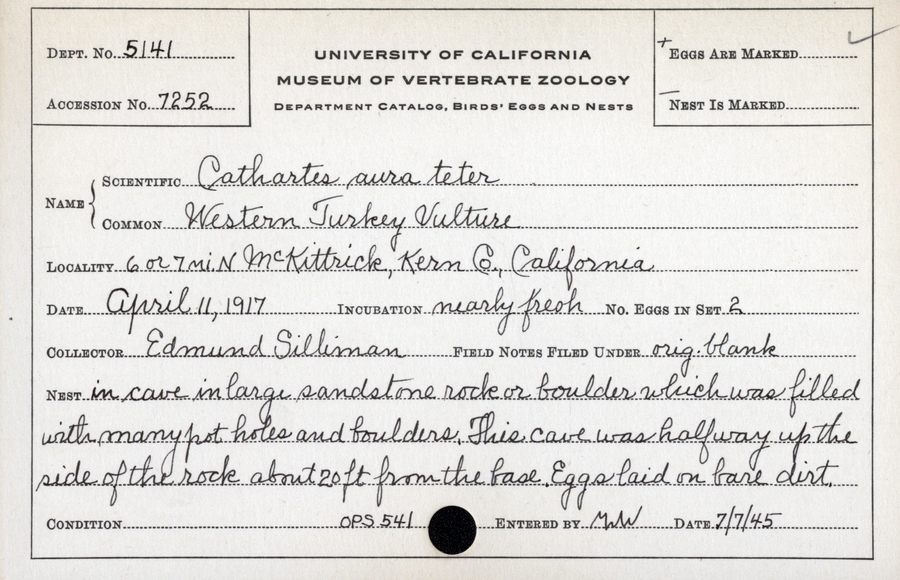 Dept. No. 5141
Accession No. 7252
UNIVERSITY OF CALIFORNIA
MUSEUM OF VERTEBRATE ZOOLOGY
Department Catalog, Birds' Eggs and Nests
+ Eggs Are Marked ✓
– Nest Is Marked
Name { Scientific Cathartes aura teter
Common Western Turkey Vulture
Locality 6 or 7 mi N McKittrick, Kern Co., California
Date April 11, 1917 Incubation nearly fresh No. Eggs in Set 2
Collector Edmund Silliman Field Notes Filed Under orig. blank
Nest in cave in large sandstone rock or boulder which was filled
with many pot holes and boulders. This cave was halfway up the
side of the rock about 20 ft from the base. Eggs laid on bare dirt.
Condition OPS 541 Entered by Date 7/7/45